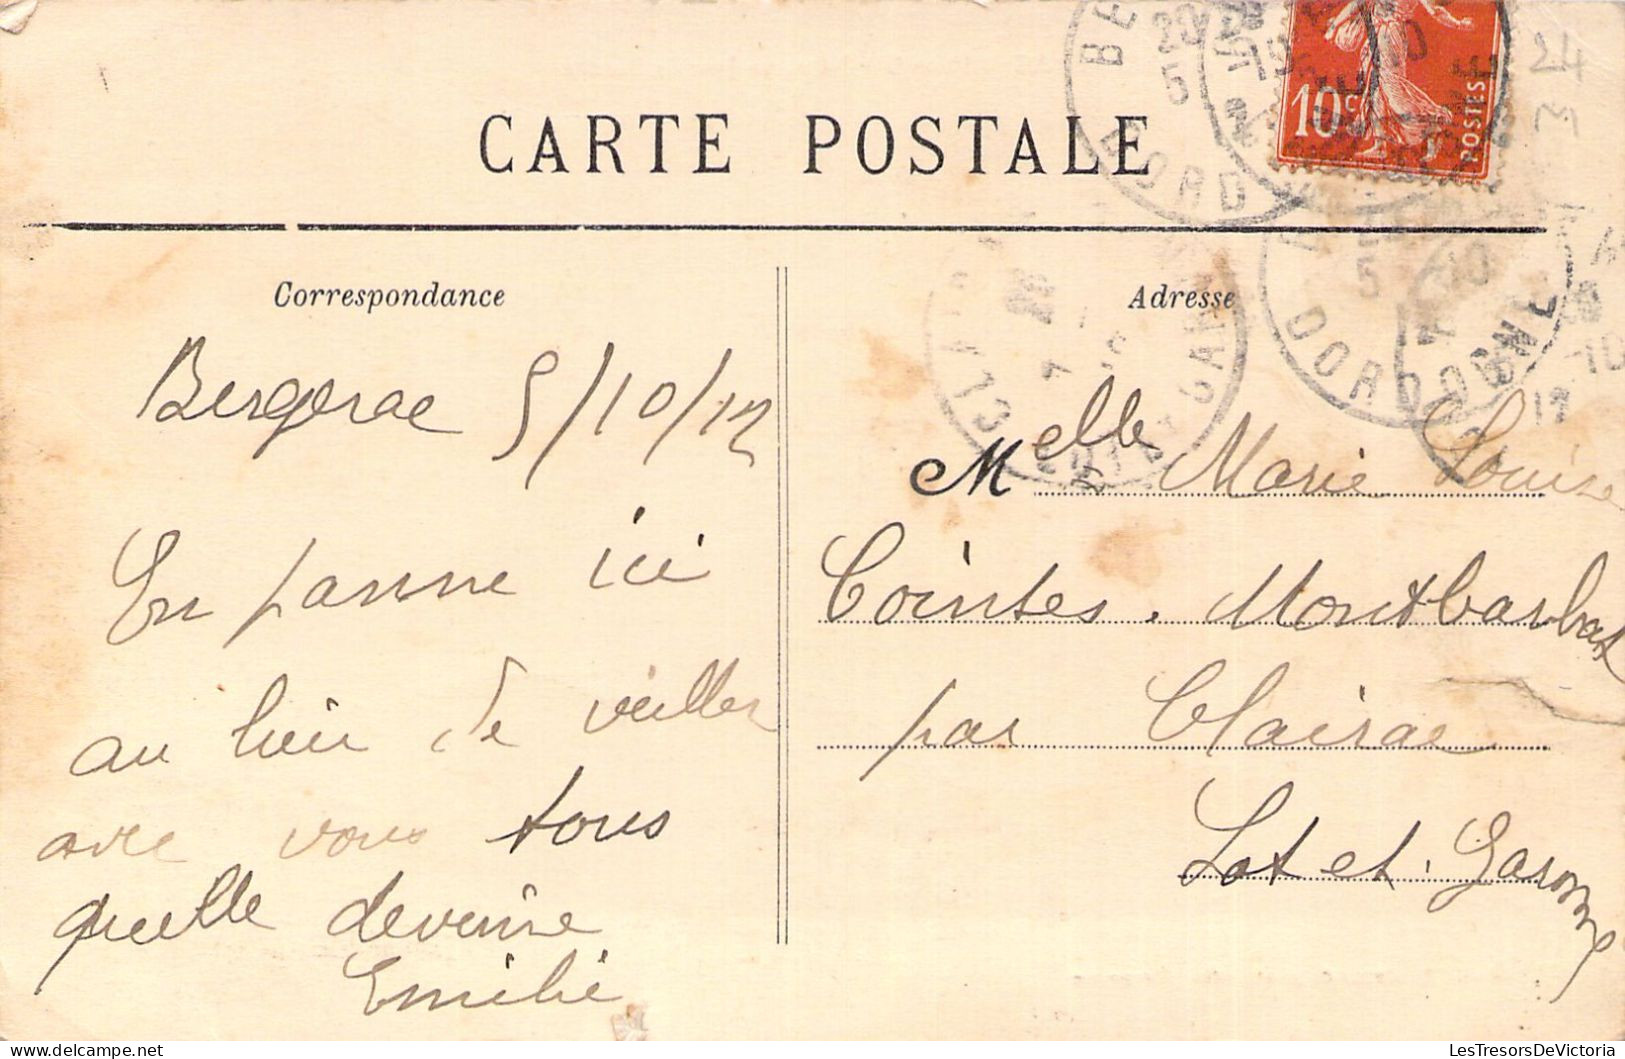 CARTE POSTALE
10c
POSTES
Correspondance
Adresse
Bergerac 5/10/12
En panne ici
au lieu de veiller
avec vous tous
quelle deveine
Emilie
Melle Marie Louise
Cointes. Montbarbat
par Clairac
Lot et. Garonne
DORDOGNE
LesTresorsDeVictoria